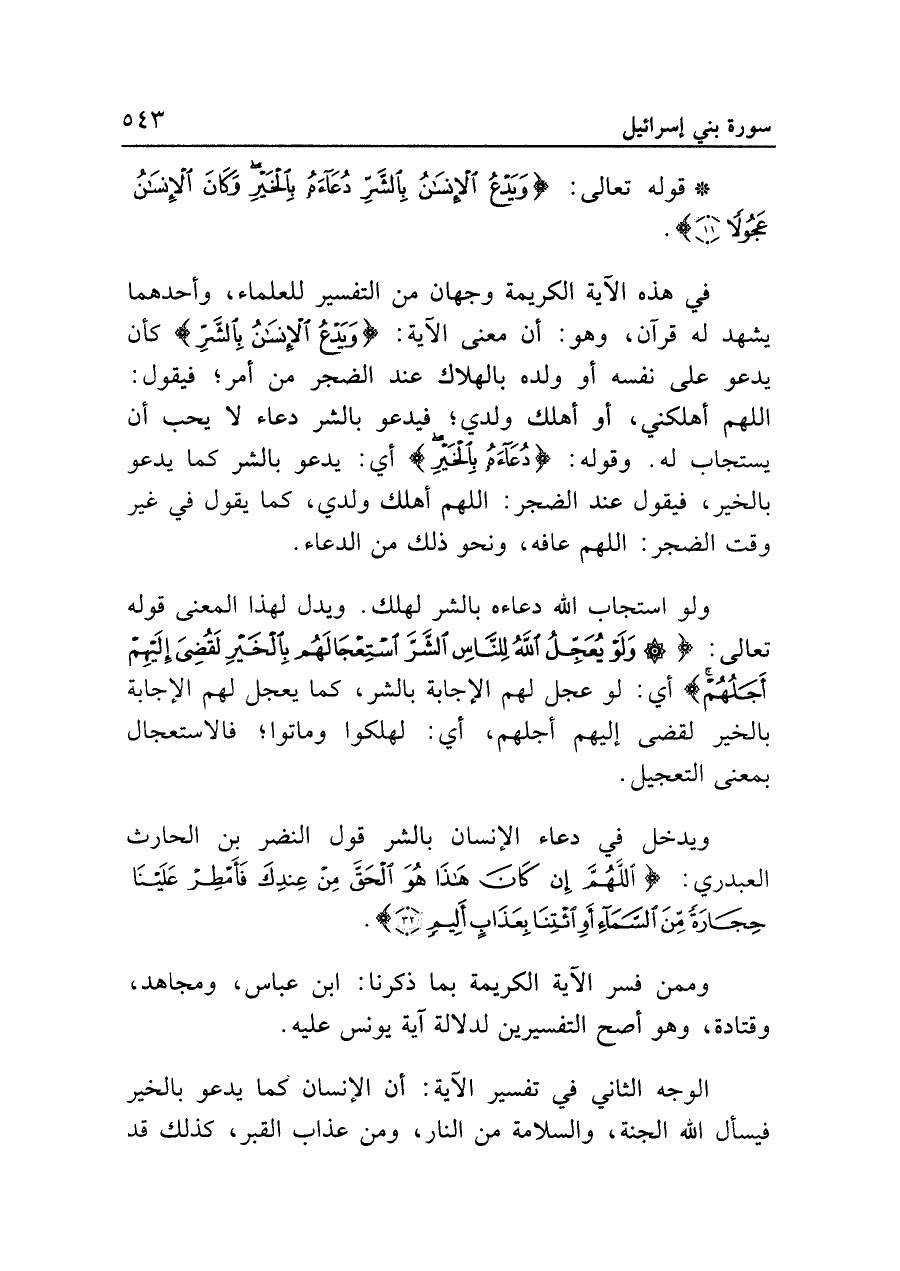 سورة بني إسرائيل ٥٤٣
* قوله تعالى: ﴿وَيَدْعُ ٱلْإِنسَٰنُ بِٱلشَّرِّ دُعَآءَهُۥ بِٱلْخَيْرِۖ وَكَانَ ٱلْإِنسَٰنُ
عَجُولًا ۝١١﴾.
في هذه الآية الكريمة وجهان من التفسير للعلماء، وأحدهما
يشهد له قرآن، وهو: أن معنى الآية: ﴿وَيَدْعُ ٱلْإِنسَٰنُ بِٱلشَّرِّ﴾ كأن
يدعو على نفسه أو ولده بالهلاك عند الضجر من أمر؛ فيقول:
اللهم أهلكني، أو أهلك ولدي؛ فيدعو بالشر دعاء لا يحب أن
يستجاب له. وقوله: ﴿دُعَآءَهُۥ بِٱلْخَيْرِۖ﴾ أي: يدعو بالشر كما يدعو
بالخير، فيقول عند الضجر: اللهم أهلك ولدي، كما يقول في غير
وقت الضجر: اللهم عافه، ونحو ذلك من الدعاء.
ولو استجاب الله دعاءه بالشر لهلك. ويدل لهذا المعنى قوله
تعالى: ﴿۞ وَلَوْ يُعَجِّلُ ٱللَّهُ لِلنَّاسِ ٱلشَّرَّ ٱسْتِعْجَالَهُم بِٱلْخَيْرِ لَقُضِىَ إِلَيْهِمْ
أَجَلُهُمْۖ﴾ أي: لو عجل لهم الإجابة بالشر، كما يعجل لهم الإجابة
بالخير لقضى إليهم أجلهم، أي: لهلكوا وماتوا؛ فالاستعجال
بمعنى التعجيل.
ويدخل في دعاء الإنسان بالشر قول النضر بن الحارث
العبدري: ﴿ٱللَّهُمَّ إِن كَانَ هَٰذَا هُوَ ٱلْحَقَّ مِنْ عِندِكَ فَأَمْطِرْ عَلَيْنَا
حِجَارَةً مِّنَ ٱلسَّمَآءِ أَوِ ٱئْتِنَا بِعَذَابٍ أَلِيمٍ ۝٣٢﴾.
وممن فسر الآية الكريمة بما ذكرنا: ابن عباس، ومجاهد،
وقتادة، وهو أصح التفسيرين لدلالة آية يونس عليه.
الوجه الثاني في تفسير الآية: أن الإنسان كما يدعو بالخير
فيسأل الله الجنة، والسلامة من النار، ومن عذاب القبر، كذلك قد